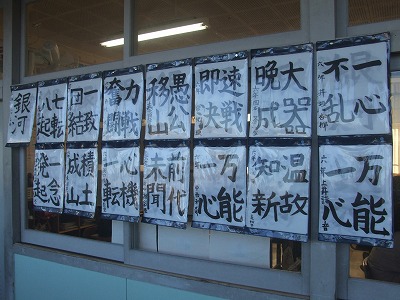 一心
不乱
大器
晩成
速戦
即決
愚公
移山
力戦
奮闘
一致
団結
七転
八起
銀河
万能
一心
温故
知新
万能
一心
前代
未聞
心機
一転
積土
成山
一念
発起